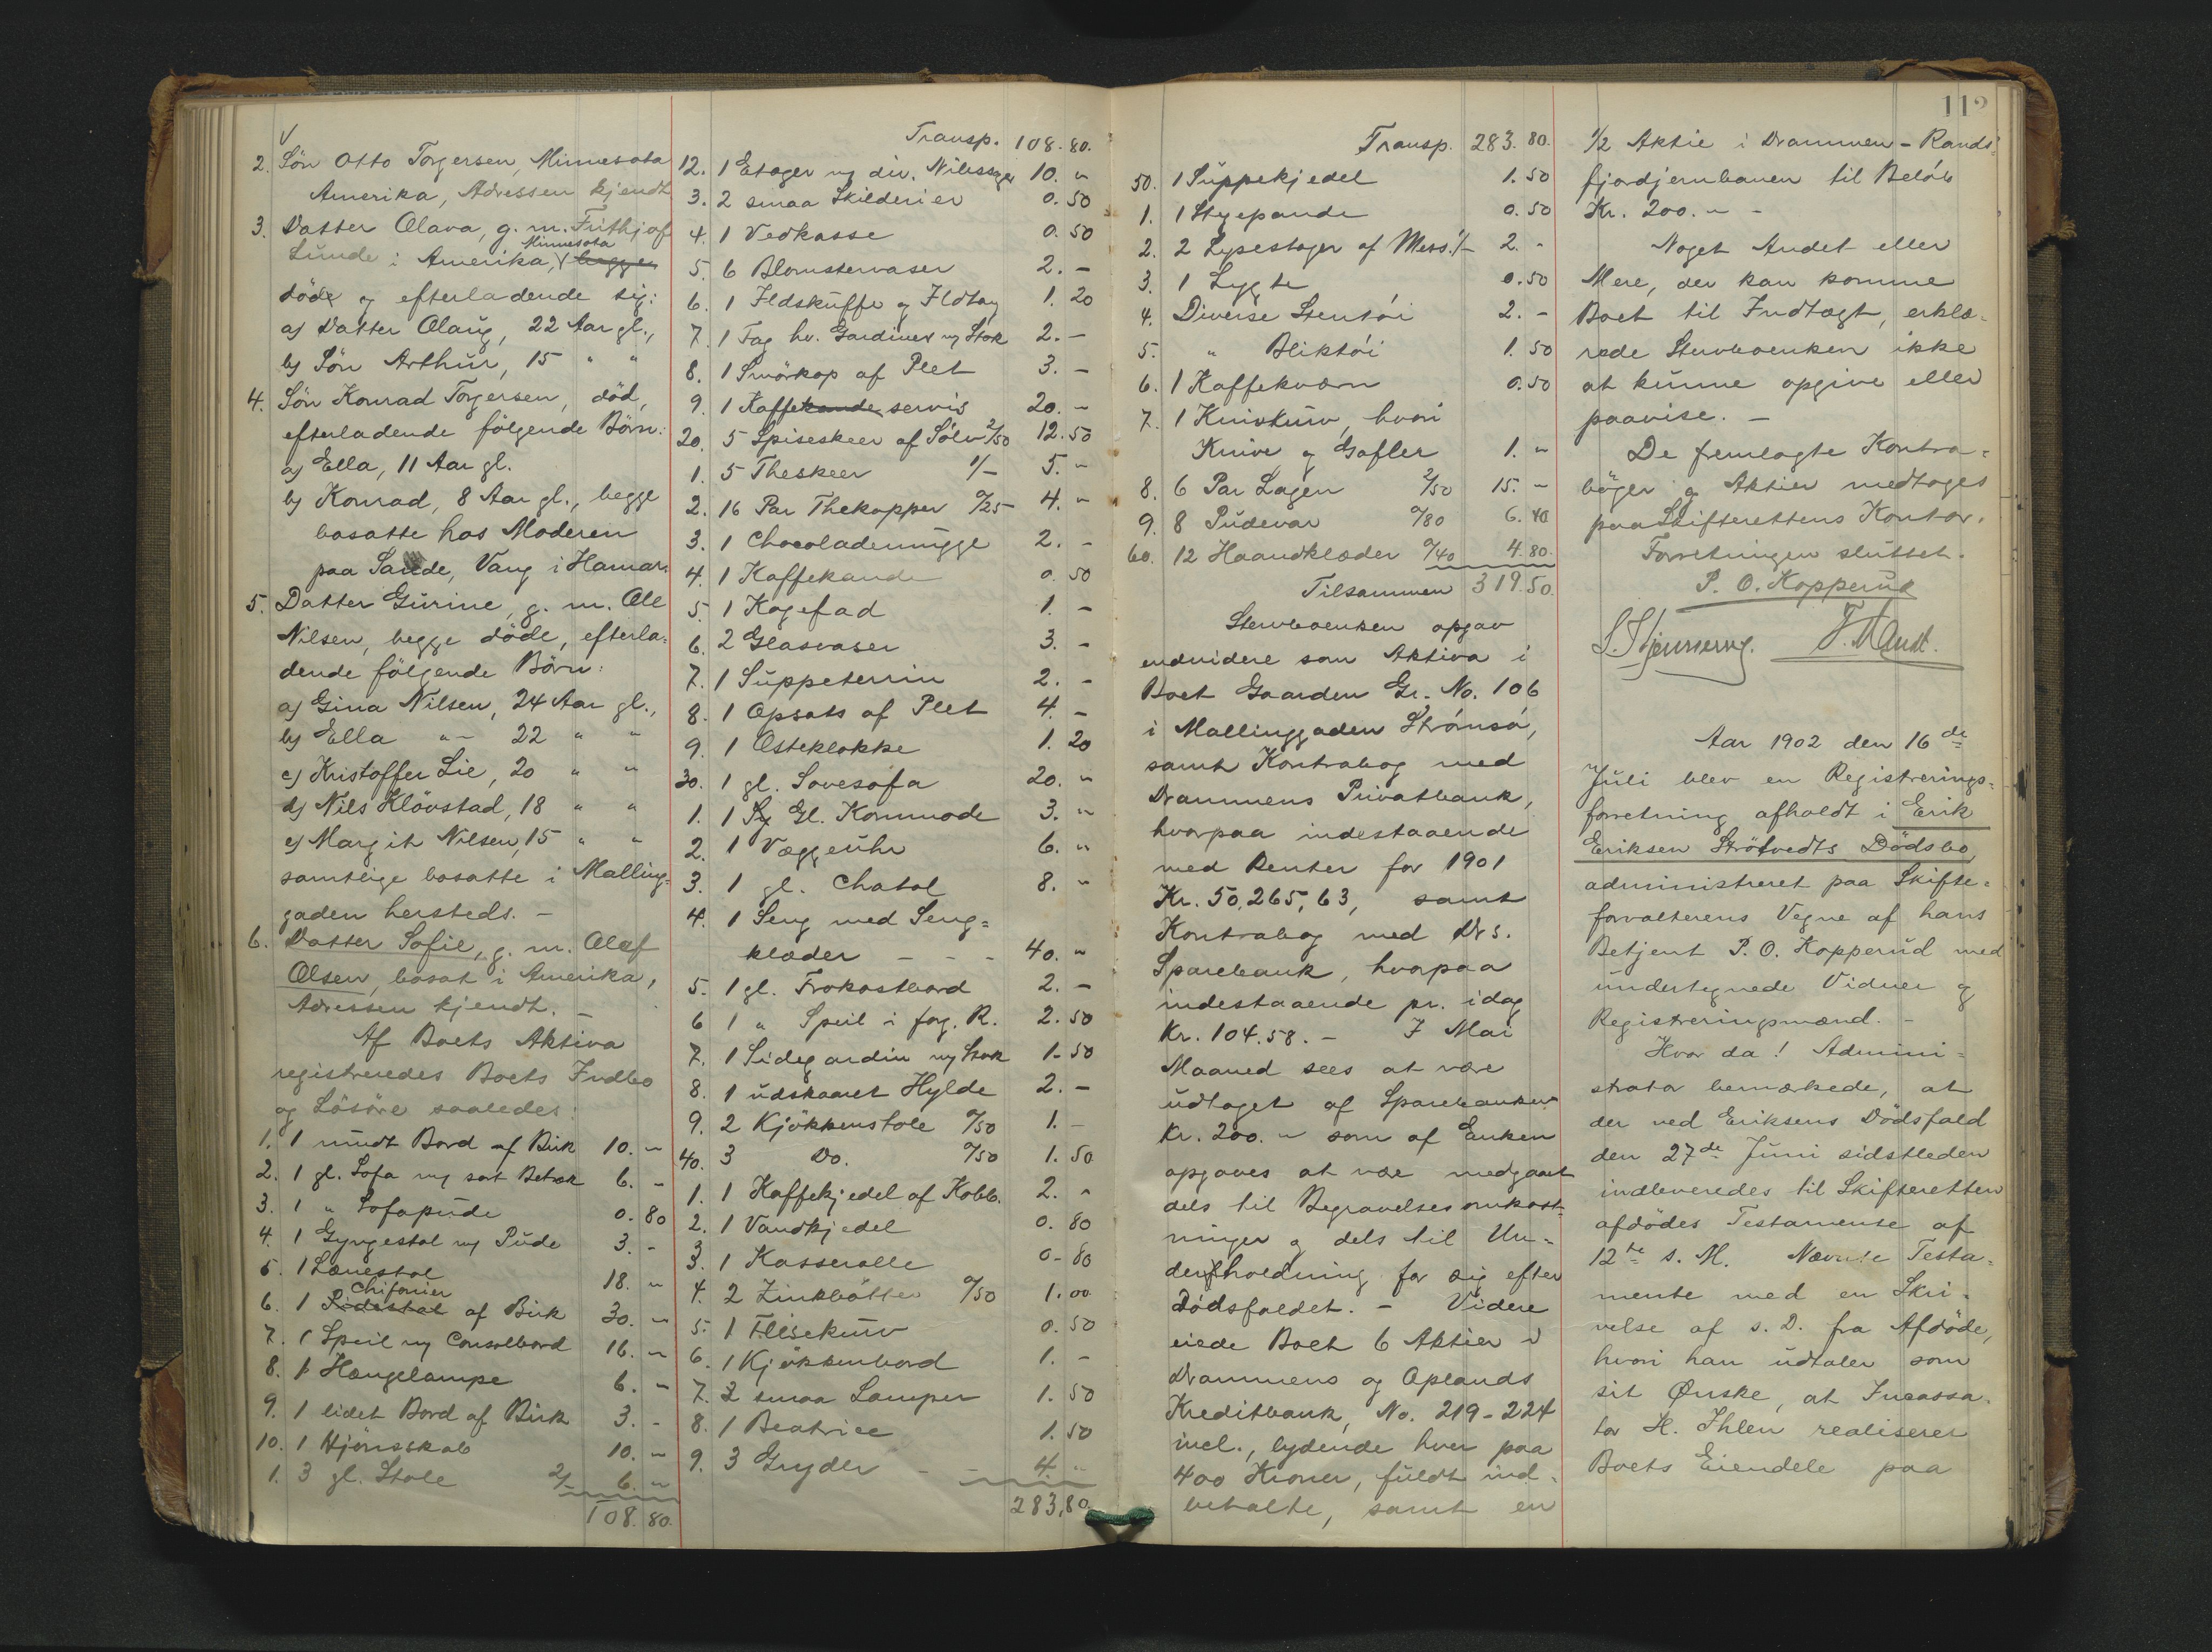 2. Sön Otto Torgersen, Minnesota
Amerika, Adressen kjendt
3. Datter Olava, g. m. Frithjof
Minnesota
Lunde i Amerika, begge
döde og efterladende sig:
a) Datter Olaug, 22 Aar gl.,
b) Sön Arthur, 15 " "
4. Sön Konrad Torgersen, död,
efterladende følgende Börn:
a) Ella, 11 Aar gl.
b) Konrad, 8 Aar gl., begge
bosatte hos Moderen
paa Sande, Vang i Hamar.
5. Datter Gurine, g. m. Ole
Nilsen, begge döde, efterla-
dende följende Börn:
a) Gina Nilsen, 24 Aar gl.,
b) Ella "– 22 " "
c) Kristoffer Lie, 20 " "
d) Nils Klövstad, 18 " "
e) Margit Nilsen, 15 " "
samtlige bosatte i Malling-
gaden hersteds. –
6. Datter Sofie, g. m. Olaf
Olsen, bosat i Amerika,
Adressen kjendt. –
Af Boets Aktiva
registreredes Boets Indbo
og Lösöre saaledes:
1. 1 rundt Bord af Birk 10. "
2. 1 gl. Sofa m/ sort Betræk 6. –
3. 1 " Sofapude 0. 80
4. 1 Gyngestol m/ Pude 3. –
5. 1 Lænestol 18. "
Chifonier
6. 1 Pidestal af Birk 30. "
7. 1 Speil m/ Consolbord 16. "
8. 1 Hængelampe 6. "
9. 1 lidet Bord af Birk 3. –
10. 1 Hjörneskab 10. "
1. 3 gl. Stole 2/– 6. "
108. 80.
Transp. 108. 80.
12. 1 Etager m/ div. Nibssager 10. "
3. 2 smaa Skilderier 0. 50
4. 1 Vedkasse 0. 50
5. 6 Blomstervaser 2. –
6. 1 Ildskuffe og Ildtang 1. 20
7. 1 Fag hv. Gardiner m/ Stok 2. –
8. 1 Smörkop af Plet 3. –
9. 1 Kaffekande servis 20. "
20. 5 Spiseskeer af Sölv 2/50 12. 50
1. 5 Theskeer 1/– 5. "
2. 16 Par Thekopper 0/25 4. "
3. 1 Chocolademugge 2. –
4. 1 Kaffekande 0. 50
5. 1 Kagefad 1. –
6. 2 Glasvaser 3. –
7. 1 Suppeterrin 2. –
8. 1 Opsats af Plet 4. –
9. 1 Osteklokke 1. 20
30. 1 gl. Sovesofa 20. "
1. 1 Gl. Kommode 3. "
2. 1 Væggeuhr 6. "
3. 1 gl. Chatol 8. "
4. 1 Seng med Seng-
klæder – – – 40. "
5. 1 gl. Frokostbord 2. –
6 1 " Speil i forg. R. 2. 50
7. 1 Sidegardin m/ Stok 1. 50
8. 1 udskaaret Hylde 2. –
9. 2 Kjökkenstole 0/50 1. –
40. 3 Do. 0/50 1. 50
1. 1 Kaffekjedel af Kobb. 2. "
2. 1 Vandkjedel 0. 80
3. 1 Kasserolle 0. 80
4. 2 Zinkbötter 0/50 1. 00
5. 1 Flisekurv 0. 50
6. 1 Kjökkenbord 1. –
7. 3 smaa Lamper 1. 50
8. 1 Beatrice 1. 50
9. 3 Gryder – – 4. "
283,80.
Transp. 283. 80.
50. 1 Suppekjedel 1. 50
1. 1 Stegepande 0. 50
2. 2 Lysestager af Mess. 1/– 2. –
3. 1 Lygte 0. 50
4. Diverse Stentöi 2. –
5. " Bliktöi 1. 50
6. 1 Kaffekværn 0. 50
7. 1 Knivkurv, hvori
Knive og Gafler 1. "
8. 6 Par Lagen 2/50 15. "
9. 8 Pudevar 0/80 6. 40
60. 12 Haandklæder 0/40 4. 80.
Tilsammen 319. 50.
Stervboenken opgav
endvidere som Aktiva i
Boet Gaarden Gr. No. 106
i Mallinggaden Strömsö,
samt Kontrabog med
Drammens Privatbank,
hvorpaa indestaaende
med Renter for 1901
Kr. 50,265,63, samt
Kontrabog med Drs.
Sparebank, hvorpaa
indestaaende pr. idag
Kr. 104.58. – I Mai
Maaned sees at være
udtaget af Sparebanken
Kr. 200. " som af Enken
opgaves at være medgaaet
dels til Begravelsesomkost-
ninger og dels til Un-
derholdning for sig efter
Dödsfaldet. – Videre
eiede Boet 6 Aktier i
Drammens og Oplands
Kreditbank, No. 219–224
incl., lydende hver paa
400 Kroner, fuldt ind-
betalte, samt en
112
1/2 Aktie i Drammen – Rands-
fjordjernbanen til Beløb
Kr. 200. " –
Noget Andet eller
Mere, der kan komme
Boet til Indtægt, erklæ-
rede Stervboenken ikke
at kunne opgive eller
paavise. –
De fremlagte Kontra-
böger og Aktier medtoges
paa Skifterettens Kontor.
Forretningen sluttet.
P. O. Kopperud
Aar 1902 den 16de
Juli blev en Registrerings-
forretning afholdt i Erik
Eriksen Strötvedts Dödsbo
administreret paa Skifte-
forvalterens Vegne af hans
Betjent P. O. Kopperud med
undertegnede Vidner og
Registreringsmænd. –
Hvor da! Admini-
strator bemærkede, at
der ved Eriksens Dödsfald
den 27de Juni sidstleden
indleveredes til Skifteretten
afdödes Testamente af
12te s. M. Nævnte Testa-
mente med en Skri-
velse af s. D. fra Afdöde,
hvori han udtaler som
sit Ønske, at Incassa-
tor H. Ihlen realiserer
Boets Eiendele paa